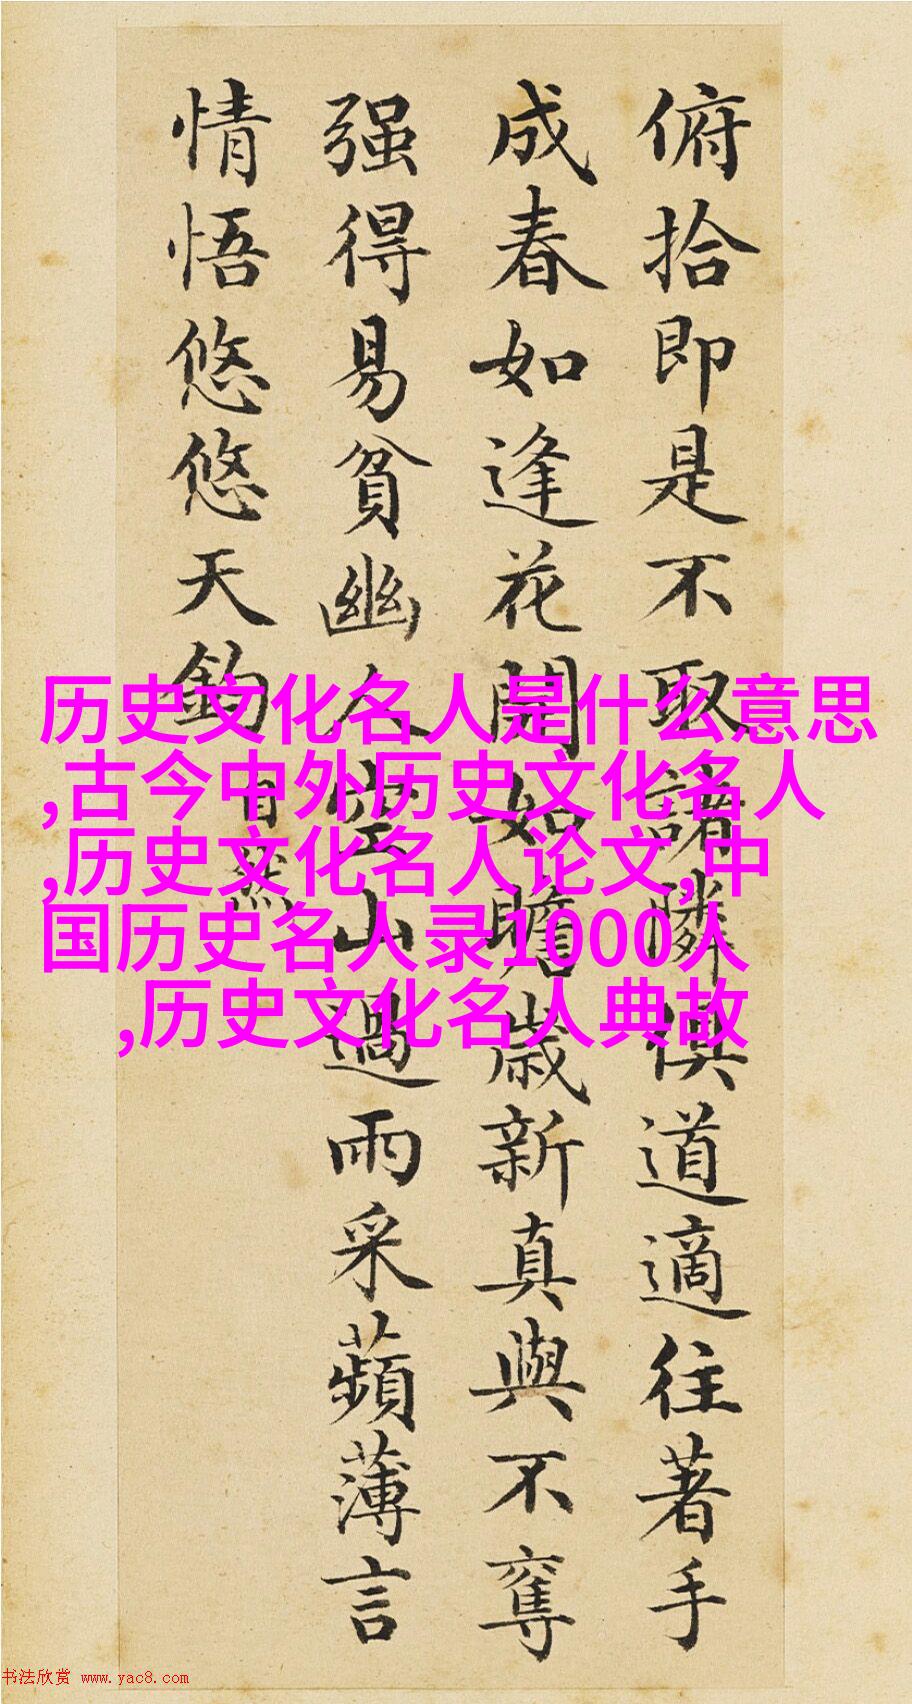 俯拾即是不取諸隣俱道適往著手
成春如逢花開如瞻歲新真與不奪
强得易貧幽人空山過雨采蘋薄言
情悟悠悠天鈞
自然
历史文化名人是什么意思
,古今中外历史文化名人
,历史文化名人论文,中
国历史名人录1000人
,历史文化名人典故
书法欣赏 www.yac8.com